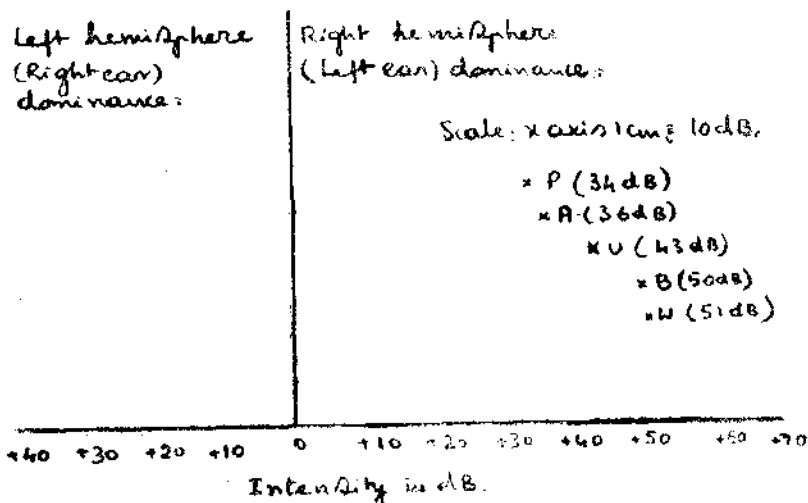 Left hemisphere
(Right ear)
dominance:
Right hemisphere
(Left ear) dominance:
Scale: x axis 1cm = 10dB.
× P (34dB)
× A (36dB)
× U (43dB)
× B (50dB)
× W (51dB)
+40 +30 +20 +10 0 +10 +20 +30 +40 +50 +60 +70
Intensity in dB.